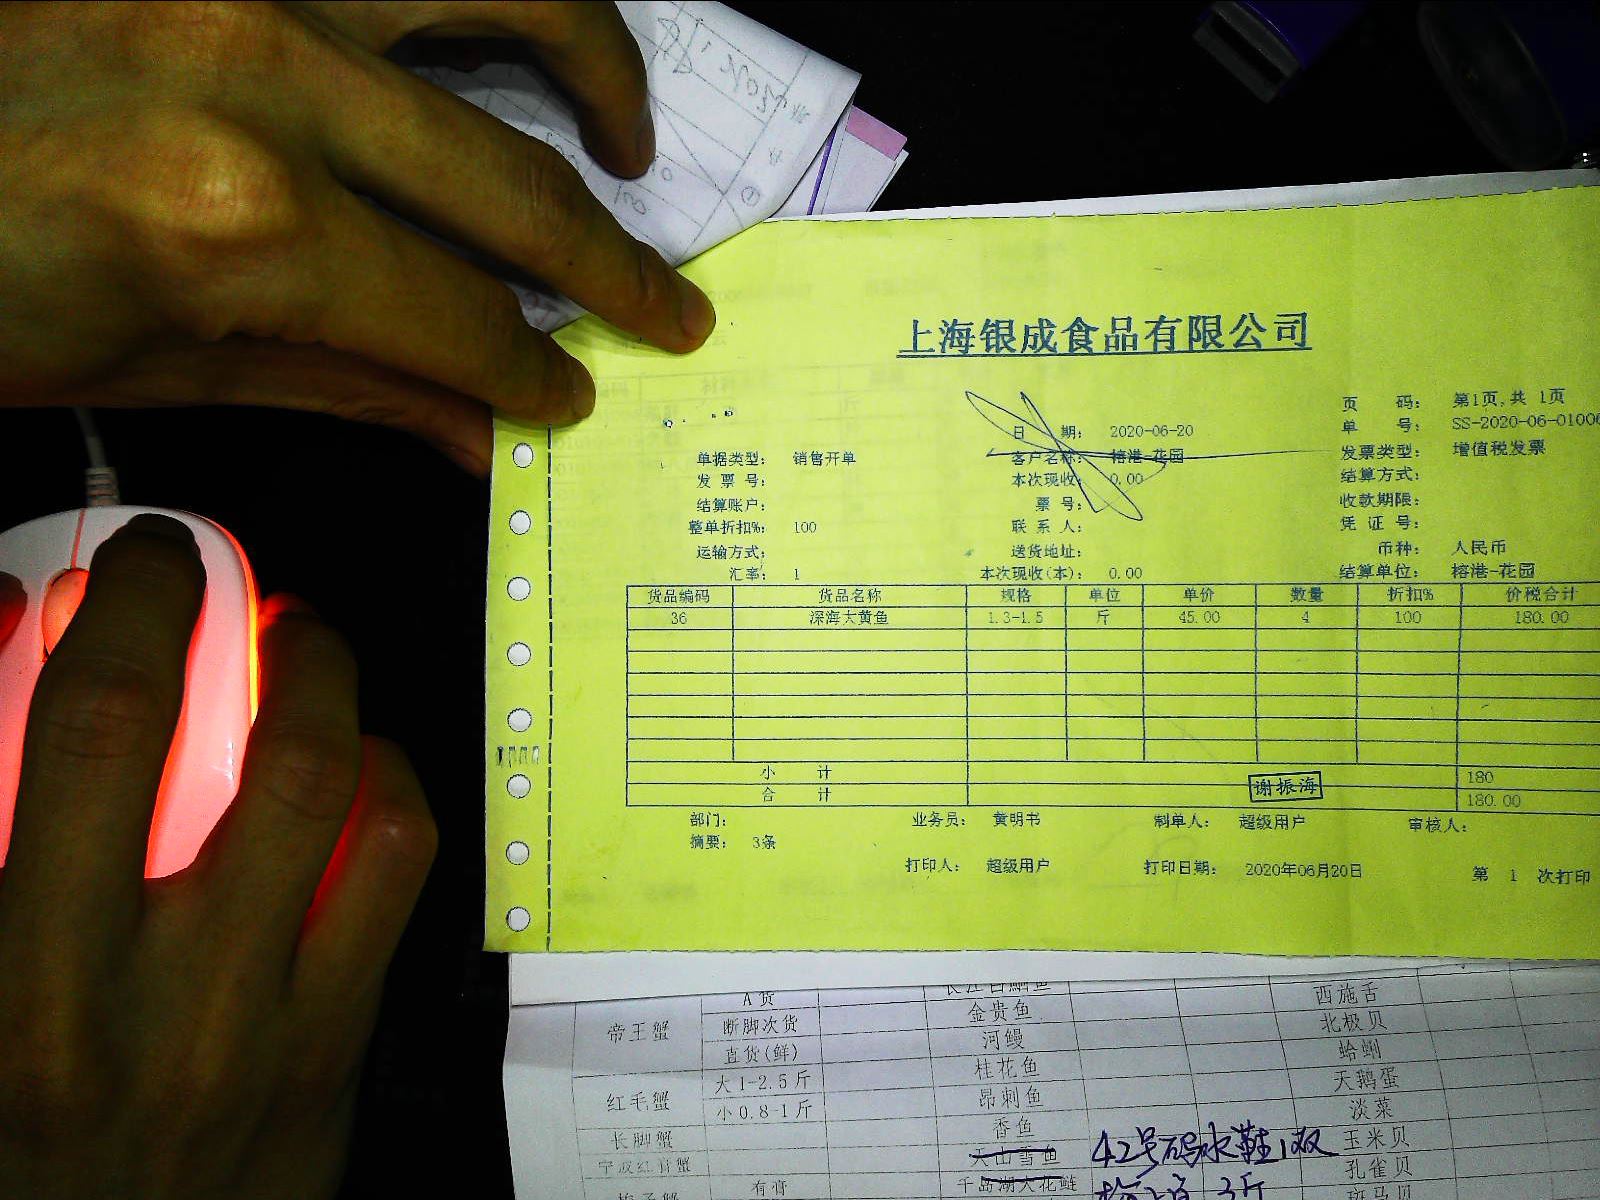 上海银成食品有限公司
页 码: 第1页,共 1页
日 期: 2020-06-20 单 号: SS-2020-06-0100
单据类型: 销售开单 客户名称: 榕港-花园 发票类型: 增值税发票
发 票 号: 本次现收: 0.00 结算方式:
结算账户: 票 号: 收款期限:
整单折扣%: 100 联 系 人: 凭 证 号:
运输方式: 送货地址: 币种: 人民币
汇率: 1 本次现收(本): 0.00 结算单位: 榕港-花园
货品编码 货品名称 规格 单位 单价 数量 折扣% 价税合计
36 深海大黄鱼 1.3-1.5 斤 45.00 4 100 180.00
小 计 180
合 计 180.00
谢振海
部门: 业务员: 黄明书 制单人: 超级用户 审核人:
摘要: 3条
打印人: 超级用户 打印日期: 2020年06月20日 第 1 次打印
A货 西施舌
帝王蟹 断脚次货 金贵鱼 北极贝
直货(鲜) 河鳗 蛤蜊
红毛蟹 大1-2.5斤 桂花鱼 天鹅蛋
小0.8-1斤 昂刺鱼 淡菜
长脚蟹 香鱼 玉米贝
宁波红膏蟹 天山雪鱼 42号码水鞋1双 孔雀贝
有膏 千岛湖大花鲢 3斤 斑马贝